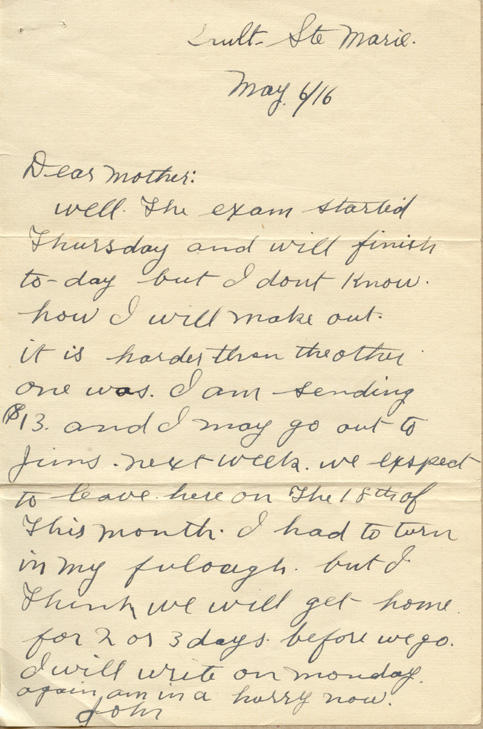 Sault- Ste Marie.
May 6/16
Dear Mother:
well. The exam started
Thursday and will finish
to-day but I dont Know.
how I will make out.
it is harder than the other
one was. I am sending
$13. and I may go out to
Jims. next week. we exspect
to leave here on The 18th of
This month. I had to turn
in my fulough. but I
Think we will get home
for 2 or 3 days. before we go.
I will write on monday.
again, am in a hurry now.
John